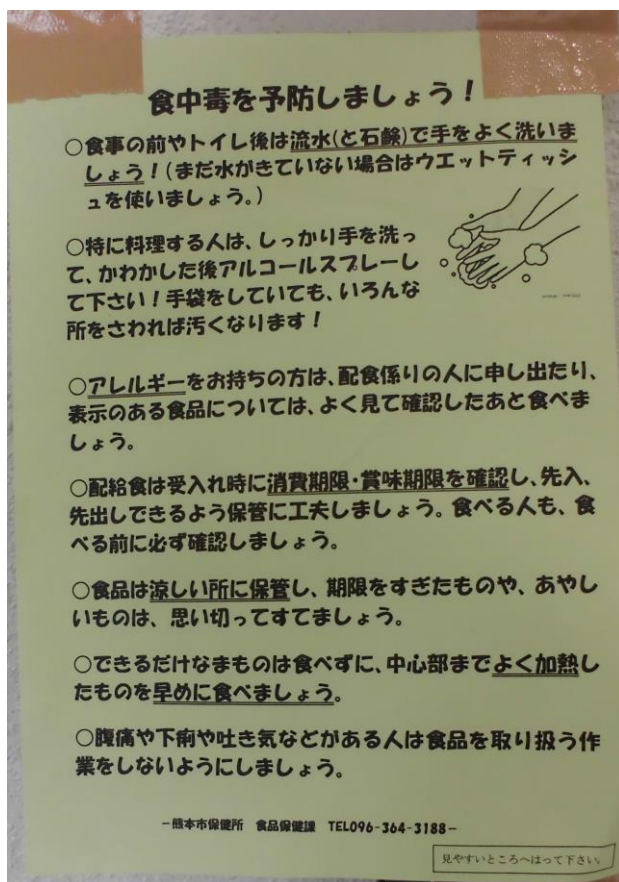 食中毒を予防しましょう!
○食事の前やトイレ後は流水(と石鹸)で手をよく洗いま
しょう!(まだ水がきていない場合はウエットティッシ
ュを使いましょう。)
○特に料理する人は、しっかり手を洗っ
て、かわかした後アルコールスプレーし
て下さい!手袋をしていても、いろんな
所をさわれば汚くなります!
○アレルギーをお持ちの方は、配食係りの人に申し出たり、
表示のある食品については、よく見て確認したあと食べま
しょう。
○配給食は受入れ時に消費期限・賞味期限を確認し、先入、
先出しできるよう保管に工夫しましょう。食べる人も、食
べる前に必ず確認しましょう。
○食品は涼しい所に保管し、期限をすぎたものや、あやし
いものは、思い切ってすてましょう。
○できるだけなまものは食べずに、中心部までよく加熱し
たものを早めに食べましょう。
○腹痛や下痢や吐き気などがある人は食品を取り扱う作
業をしないようにしましょう。
-熊本市保健所 食品保健課 TEL096-364-3188-
見やすいところへはって下さい。